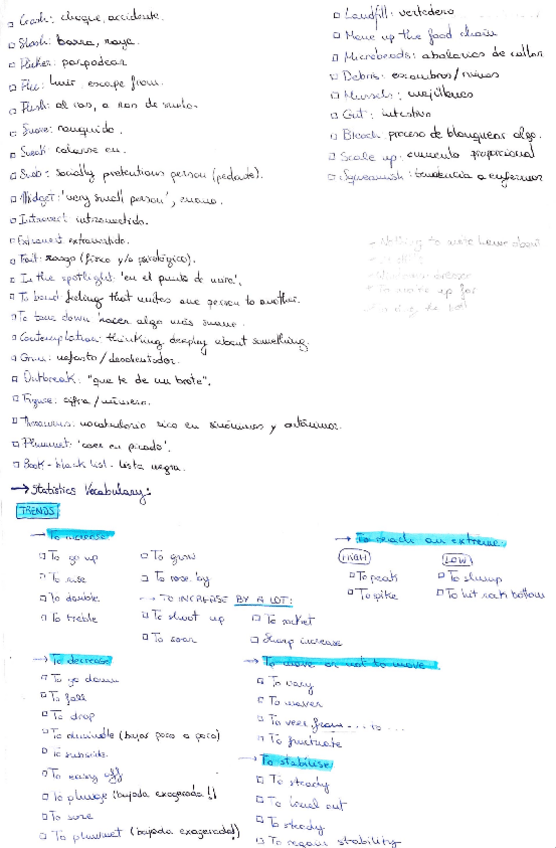 Crash: choque, accidente.
Slash: barra, raya.
Flicker: parpadear
Flee: huir, escape from.
Flush: al ras, a ras de suelo.
Snore: ronquido.
Sneak: colarse en.
Snob: socially pretentious person (pedante).
Midget: 'very small person', enano.
Introvert: introvertido.
Extrovert: extrovertido.
Trait: rasgo (físico y/o psicológico).
In the spotlight: 'en el punto de mira'.
To bond: feeling that unites one person to another.
To tone down: 'hacer algo más suave'.
Contemplation: thinking deeply about something.
Grim: nefasto / desalentador.
Outbreak: "que te de un brote".
Figure: cifra / número.
Thesaurus: vocabulario rico en sinónimos y antónimos.
Plummet: 'caer en picado'.
Book - black list - lista negra.
Landfill: vertedero
Move up the food chain
Microbeads: abalorios de
Debris: escombros / ruinas
Mussels: mejillones
Gut: intestino
Bleach: proceso de blanquear algo.
Scale up: aumento proporcional
Squeamish: tendencia a enfermar
→ Statistics Vocabulary:
TRENDS
→ To increase
To go up
To rise
To double
To treble
To grow
To rose by
→ TO INCREASE BY A LOT:
To shoot up
To soar
To rocket
Sharp increase
→ To reach an extreme
HIGH
To peak
To spike
LOW
To slump
To hit rock bottom
→ To decrease
To go down
To fall
To drop
To dwindle (bajar poco a poco)
To subside
To easy off
To plunge (bajada exagerada!!)
To
To plummet (bajada exagerada!!)
→ To move or not to move
To vary
To waver
To veer from ... to ...
To fluctuate
→ To stabilise
To steady
To level out
To steady
To regain stability